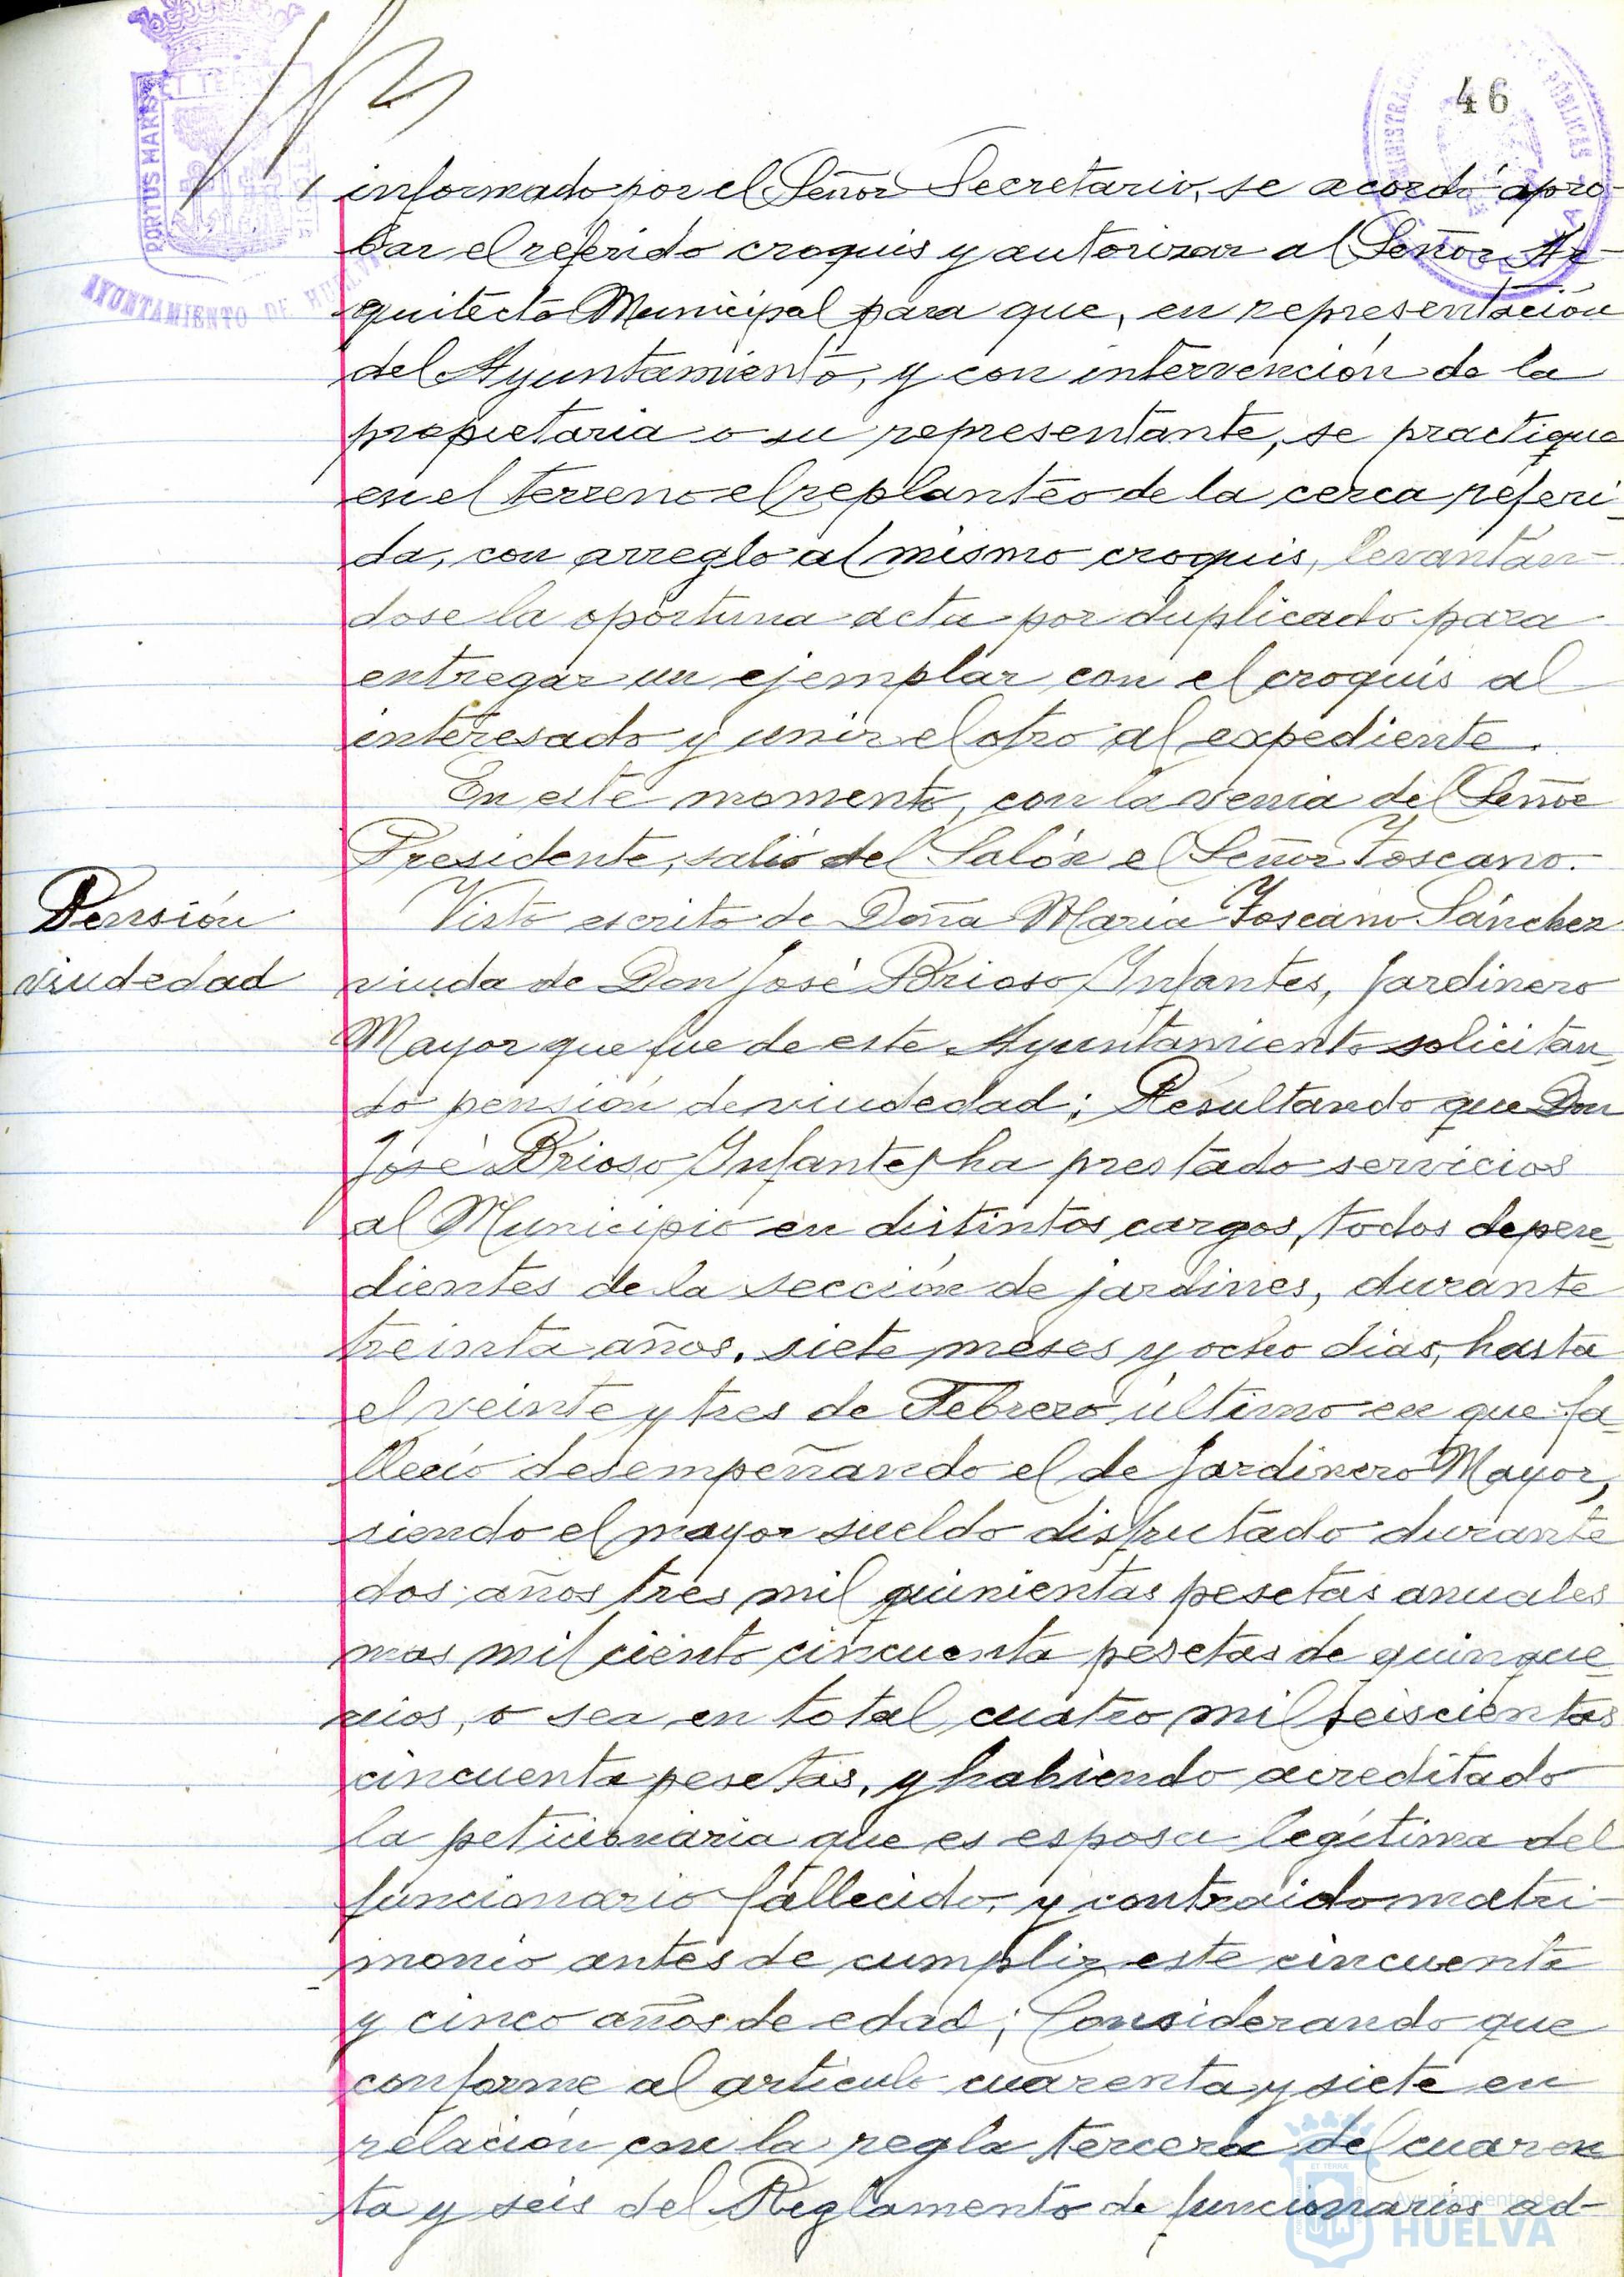 46
informado por el Señor Secretario, se acordó apro-
bar el referido croquis y autorizar al Señor Ar-
quitecto Municipal para que, en representación
del Ayuntamiento, y con intervención de la
propietaria o su representante, se practique
en el terreno el replanteo de la cerca referi-
da, con arreglo al mismo croquis, levantán-
dose la oportuna acta por duplicado para
entregar un ejemplar con el croquis al
interesado y unir el otro al expediente.
En este momento, con la venia del Señor
Presidente, salió del Salón el Señor Toscano.
Pensión
viudedad
Visto escrito de Doña María Toscano Sánchez
viuda de Don José Brioso Infantes, Jardinero
Mayor que fue de este Ayuntamiento solicitan-
do pensión de viudedad; Resultando que Don
José Brioso Infantes ha prestado servicios
al Municipio en distintos cargos, todos depen-
dientes de la sección de jardines, durante
treinta años, siete meses y ocho días, hasta
el veinte y tres de Febrero último en que fa-
lleció desempeñando el de Jardinero Mayor,
siendo el mayor sueldo disfrutado durante
dos años tres mil quinientas pesetas anuales
mas mil ciento cincuenta pesetas de quinque
nios, o sea en total cuatro mil seiscientas
cincuenta pesetas, y habiendo acreditado
la peticionaria que es esposa legítima del
funcionario fallecido, y contraido matri-
monio antes de cumplir este cincuenta
y cinco años de edad; Considerando que
conforme al artículo cuarenta y siete en
relación con la regla tercera del cuaren
ta y seis del Reglamento de funcionarios ad-
PORTUS MARIS
ET TERRAE
AYUNTAMIENTO DE HUELVA
Ayuntamiento de
HUELVA